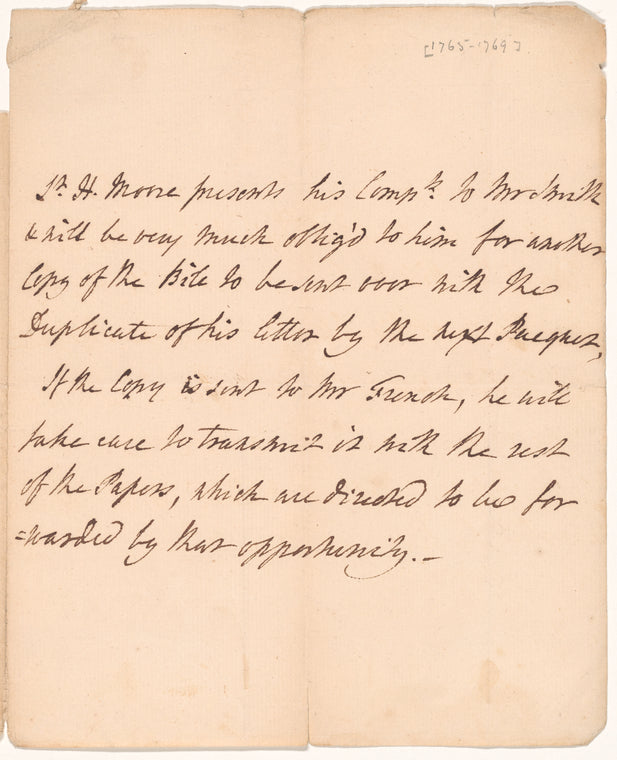 [1765-1769].
Sr. H. Moore presents his Compts. to Mr Smith
& will be very much oblig'd to him for another
Copy of the Bill to be sent over with the
Duplicate of his letter by the next Pacquet,
If the Copy is sent to Mr French, he will
take care to transmit it with the rest
of the Papers, which are directed to be for
=warded by that opportunity.—